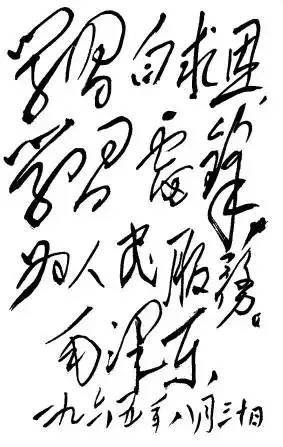 学習白求恩，
学習雷鋒，
为人民服務。
毛泽东
一九六五年八月三十日